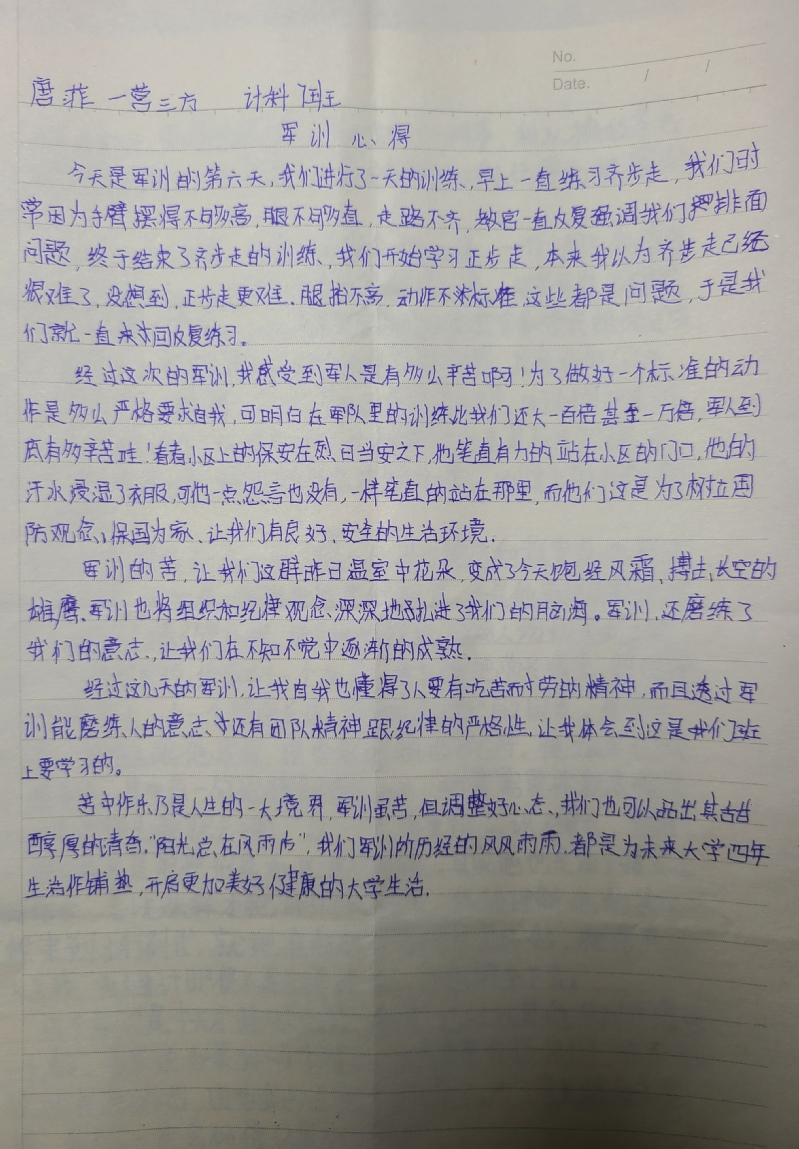 No.
Date. / /
唐菲 一营三方 计科7班
军训心得
今天是军训的第六天,我们进行了一天的训练,早上一直练习齐步走,我们时
常因为手臂摆得不够高,腿不够直,走路不齐,教官一直反复强调我们把排面
问题,终于结束了齐步走的训练,我们开始学习正步走,本来我以为齐步走已经
很难了,没想到,正步走更难.腿抬不高,动作不标准,这些都是问题,于是我
们就一直来回反复练习。
经过这次的军训,我感受到军人是有多么辛苦啊!为了做好一个标准的动
作是多么严格要求自我,可明白在军队里的训练比我们还大一百倍甚至一万倍,军人到
底有多辛苦哇!看看小区上的保安在烈日当安之下,他笔直有力的站在小区的门口,他的
汗水浸湿了衣服,可他一点怨言也没有,一样笔直的站在那里,而他们这是为了树立国
防观念,保国为家、让我们有良好、安全的生活环境.
军训的苦,让我们这群昨日温室中花朵,变成了今天饱经风霜,搏击长空的
雄鹰.军训也将组织和纪律观念、深深地扎进了我们的脑海。军训,还磨练了
我们的意志,让我们在不知不觉中逐渐的成熟.
经过这几天的军训,让我自我也懂得了人要有吃苦耐劳的精神,而且透过军
训能磨练人的意志,还有团队精神跟纪律的严格性,让我体会到这是我们班
上要学习的。
苦中作乐乃是人生的一大境界,军训虽苦,但调整好心态,我们也可以品出其苦甘
醇厚的清香."阳光总在风雨后",我们军训所历经的风风雨雨.都是为未来大学四年
生活作铺垫,开启更加美好健康的大学生活.